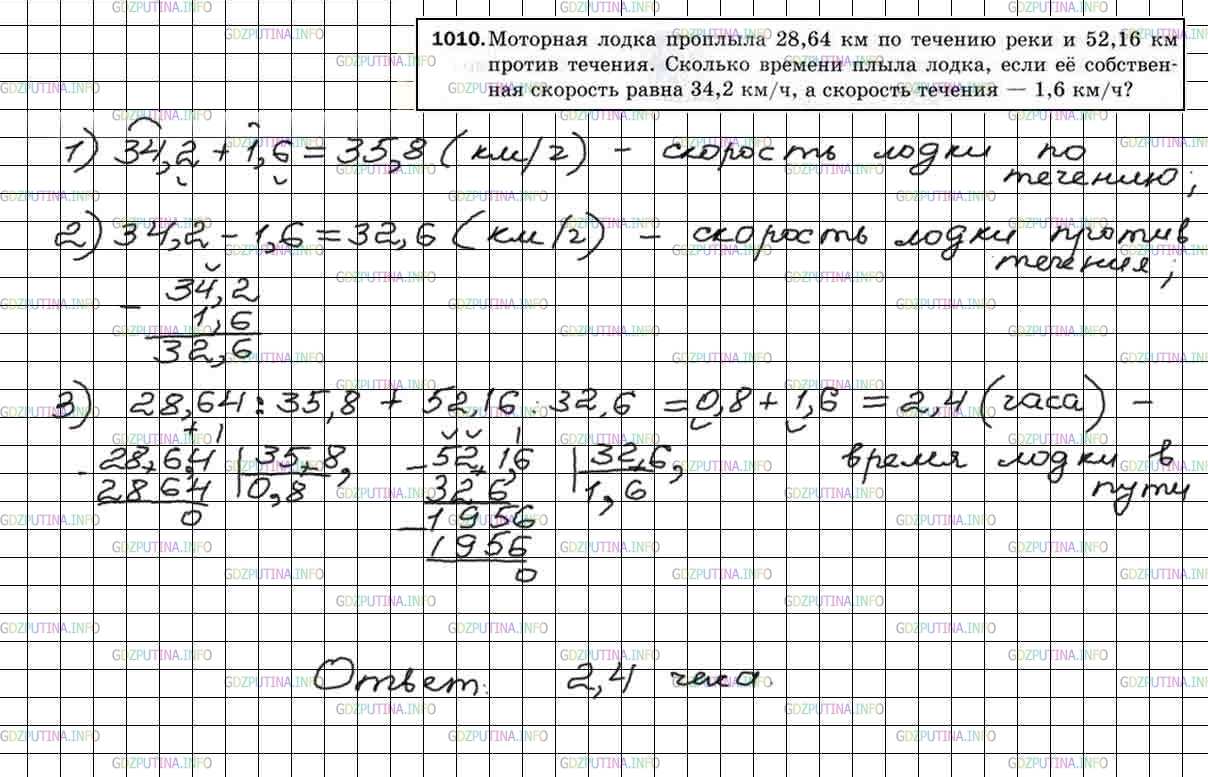 1010. Моторная лодка проплыла 28,64 км по течению реки и 52,16 км
против течения. Сколько времени плыла лодка, если её собствен-
ная скорость равна 34,2 км/ч, а скорость течения — 1,6 км/ч?
1) 34,2 + 1,6 = 35,8 (км/ч) - скорость лодки по
течению;
2) 34,2 - 1,6 = 32,6 (км/ч) - скорость лодки против
течения;
- 34,2
1,6
32,6
3) 28,64 : 35,8 + 52,16 : 32,6 = 0,8 + 1,6 = 2,4 (часа) -
- 28,6,4 | 35,8, - 52,1,6 | 32,6, время лодки в
2864 | 0,8 326 | 1,6 пути
0 - 1956
1956
0
Ответ: 2,4 часа.
GDZPUTINA.INFO